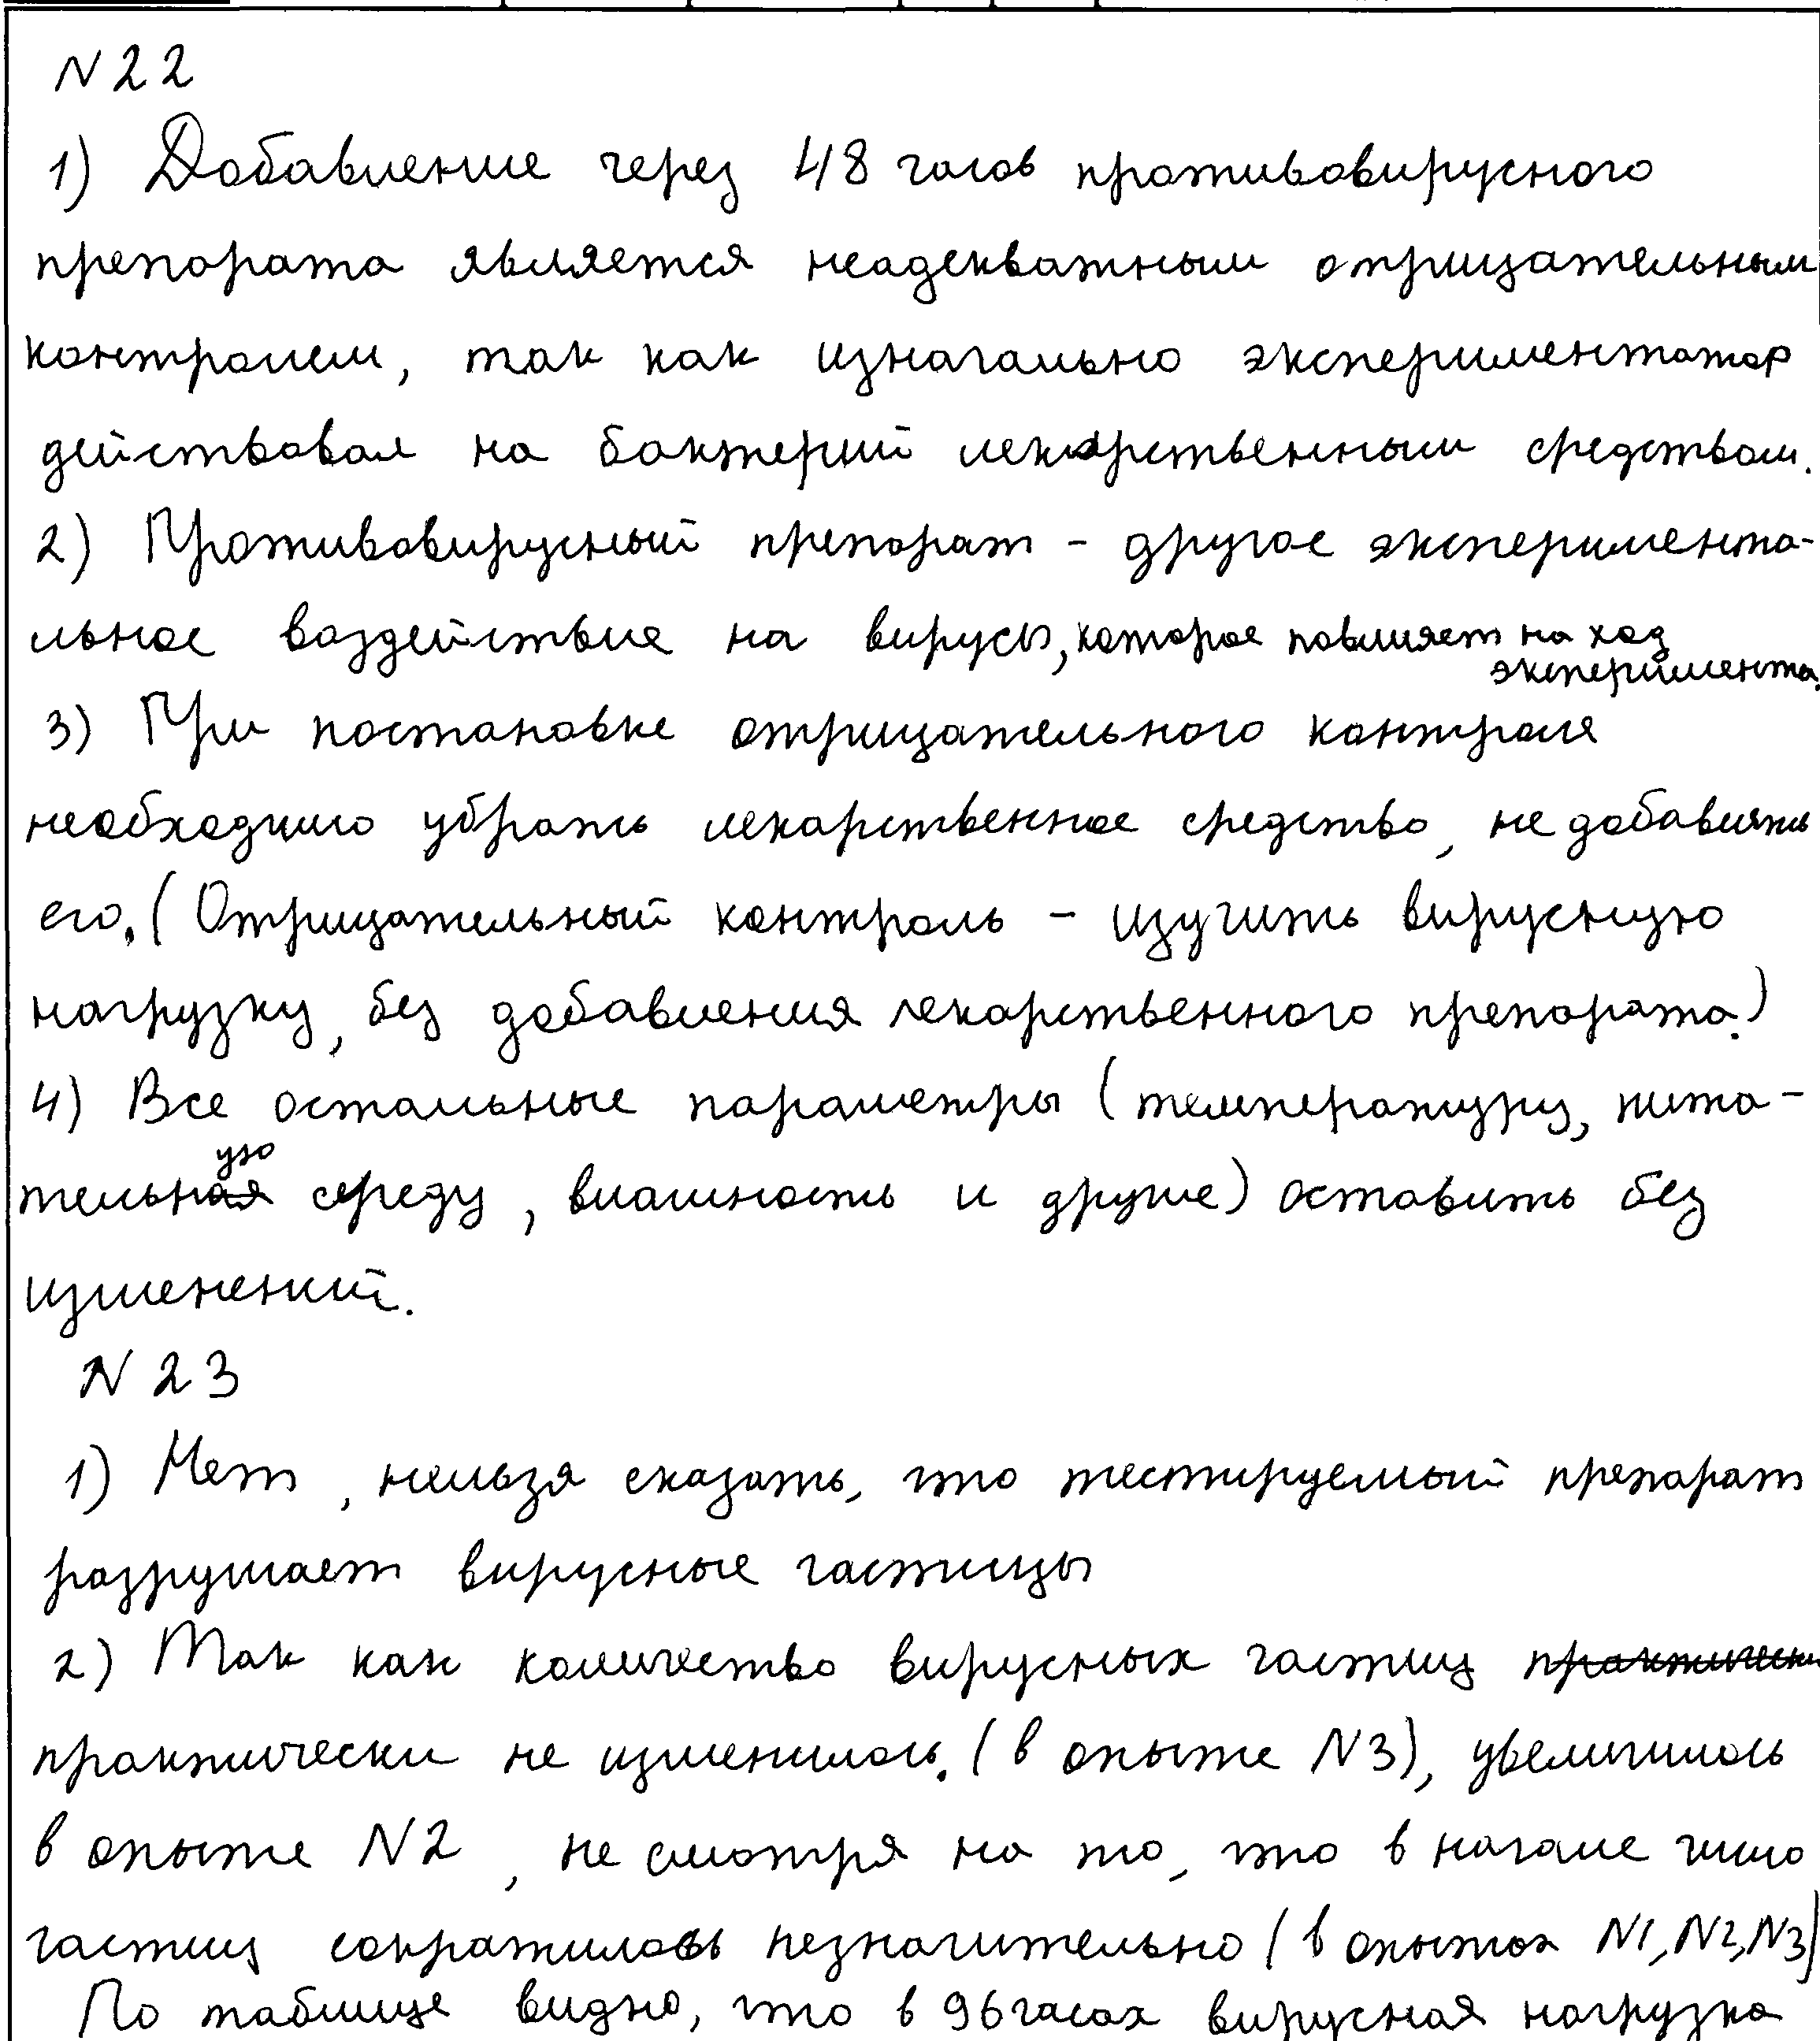 N22
1) Добавление через 48 часов противовирусного
препарата является неадекватным отрицательным
контролем, так как изначально экспериментатор
действовал на бактерий лекарственным средством.
2) Противовирусный препарат - другое эксперимента-
льное воздействие на вирусы, которое повлияет на ход
эксперимента.
3) При постановке отрицательного контроля
необходимо убрать лекарственное средство, не добавлять
его. (Отрицательный контроль - изучить вирусную
нагрузку, без добавления лекарственного препарата.)
4) Все остальные параметры (температуру, пита-
тельную среду, влажность и другие) оставить без
изменений.
N 23
1) Нет, нельзя сказать, что тестируемый препарат
разрушает вирусные частицы
2) Так как количество вирусных частиц практически
практически не изменилось. (в опыте N3), увеличилось
в опыте N2, не смотря на то, что в начале число
частиц сократилось незначительно (в опытах N1, N2, N3)
По таблице видно, что в 96 часах вирусная нагрузка